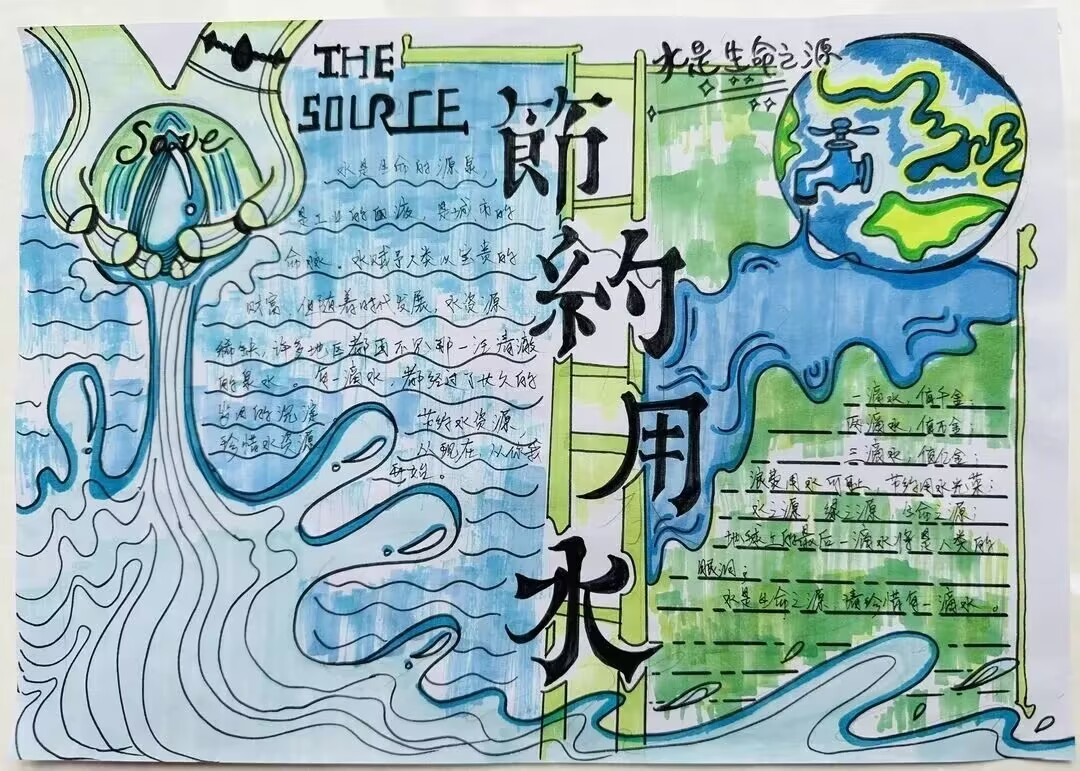 THE
SOURCE
Save
節約用水
水是生命之源
水是生命的源泉，
是工业的血液，是城市的
命脉。水赋予人类以宝贵的
财富，但随着时代发展，水资源
稀缺，许多地区都因不见那一汪清澈
的泉水。每一滴水，都经过了世久的
岁月的沉淀
节约水资源，
珍惜水资源
从现在，从你我
开始。
一滴水，值千金；
两滴水，值万金；
三滴水，值亿金；
浪费用水可耻，节约用水光荣；
水之源，绿之源，生命之源；
地球上的最后一滴水将是人类的
眼泪；
水是生命之源 请珍惜每一滴水。